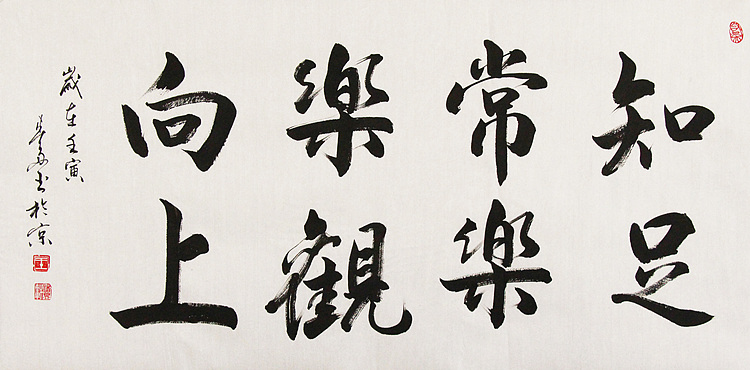 知足
常樂
樂觀
向上
歲在壬寅
書於京